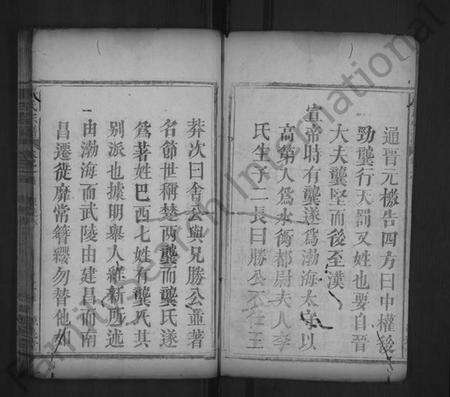 通晉元檄告四方曰中權後
勁龔行天罰又姓也要自晉
大夫龔堅而後至漢
宣帝時有龔遂爲渤海太守以
高第入爲水衡都尉夫人李
氏生子二長曰勝公不仕王
莽次曰舍公與兄勝公並著
名節世稱楚兩龔而龔氏遂
爲著姓巴西七姓有龔氏其
別派也據明舉人繼新所述
一由渤海而武陵由建昌而南
昌遷徙靡常簪纓勿替他如